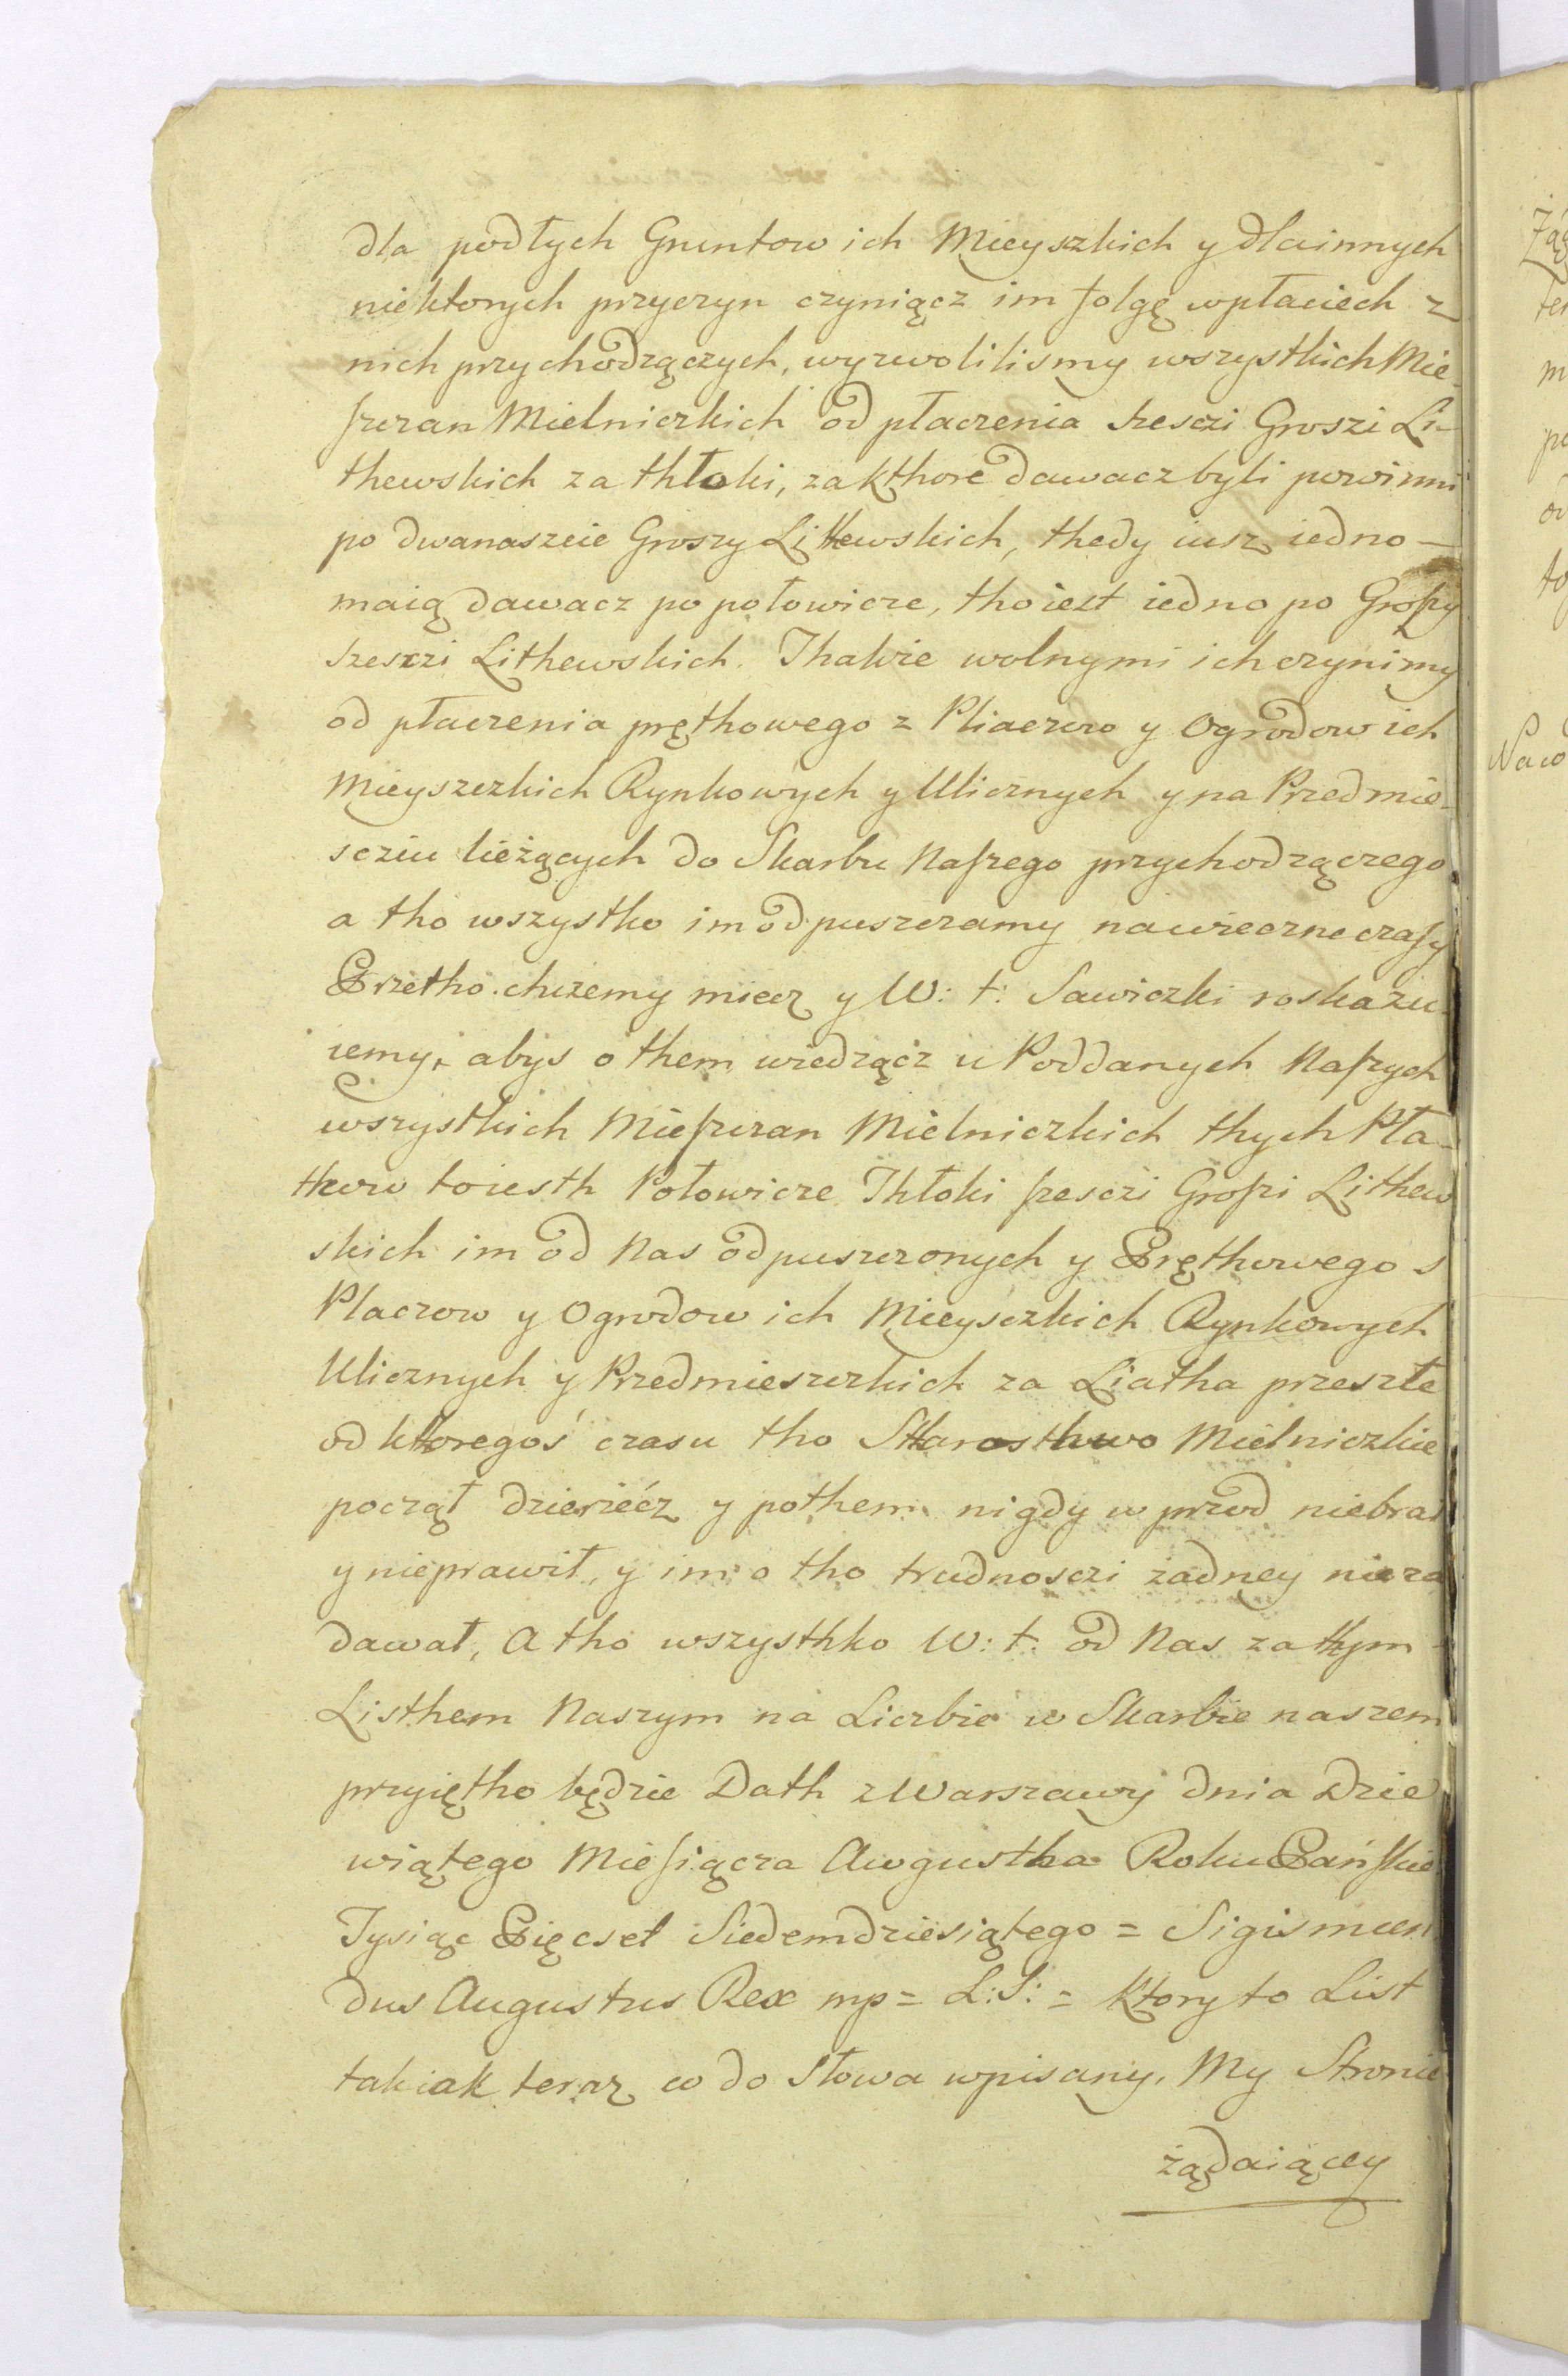 dla podłych Gruntow ich Mieyszkich y dla innych
niektorych przyczyn czyniącz im folgę wpłaciech z
nich przychodzączych, wyzwolilismy wszystkich Mie-
szczan Mielniczkich od płaczenia szesczi Groszi Li-
thewskich za thłoki, za kthore dawacz byli powinni
po dwanaszcie Groszy Lithewskich, thedy iusz iedno –
maią dawacz po połowicze, tho iest iedno po Groszy
szesczi Lithewskich. Thakie wolnymi ich czynimy
od płaczenia pręthowego z Pliaczow y Ogrodow ich
Mieyszczkich Rynkowych y Ulicznych y na Przedmie-
scziu lieżących do Skarbu Naszego przychodzączego
a tho wszystko im odpuszczamy na wieczne czasy
Przetho chczemy miecz y W: t: Sawiczki roskazu-
iemy, abys o them wiedząćz u Poddanych Naszych
wszystkich Mieszczan Mielniczkich thych Pła-
thow toiesth Połowicze Thłoki szesczi Groszi Lithew
skich im od Nas odpuszczonych y Pręthowego s
Placzow y Ogrodow ich Mieysczkich Rynkowych
Ulicznych y Przedmieszczkich za Liatha przeszłe
od kthoregoś czasu tho Stharosthwo Mielniczkie
począł dzierżećz y pothem nigdy w przod niebrał
y nieprawił, y im o tho trudnosczi żadney nieza
dawał, A tho wszysthko W: t: od Nas za thym
Listhem Naszym na Liczbie w Skarbie naszem
przyiętho będzie Dath z Warszawy dnia Dzie
wiątego Miesiącza Awgustha Roku Pańskie
Tysiąc Pięcset Siedemdziesiątego = Sigismun
dus Augustus Rex mp = L: S: = Ktory to List
tak iak teraz co do Słowa wpisany, My Stronie
żądaiącey